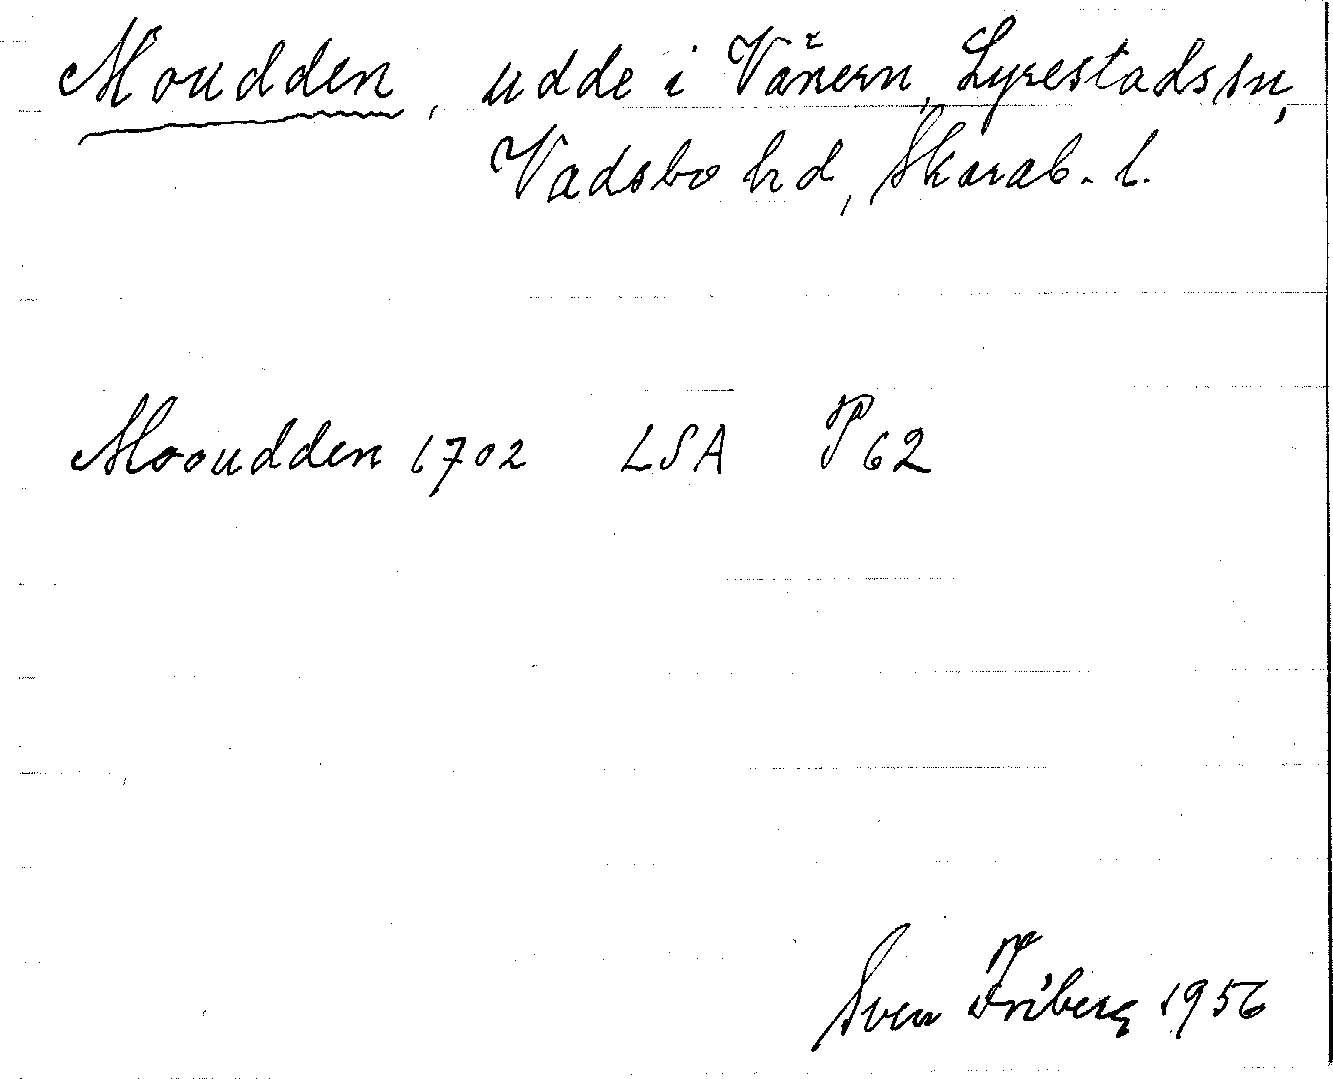 Moudden, udde i Vänern, Lyrestads sn,
Vadsbo hd, Skarab. l.
Mooudden 1702 LSA P 62
Sven Friberg 1956